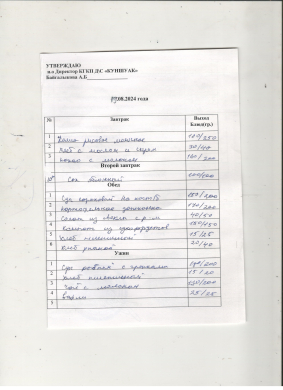 УТВЕРЖДАЮ
и.о Директор КГКП Д/С «КУНШУАК»
Байгальинова А.Б
19.08.2024 года
№ Завтрак Выход блюд(гр.)
1 Каша рисовая молочная 180/250
2 Хлеб с маслом и сыром 30/40
3 Какао с молоком 160/200
Второй завтрак
10⁰⁰ Сок яблочный 100/100
Обед
1 Суп гороховый на кост/б 150/200
2 картофельное 140/200
3 Салат из свеклы с р.м 40/50
4 Компот из сухофруктов 150/150
5 Хлеб пшеничный 15/25
6 Хлеб ржаной 20/40
Ужин
1 Суп рыбный с гренками 190/200
2 Хлеб пшеничный 15/20
3 Чай с молоком 150/200
4 вафли 25/25
5